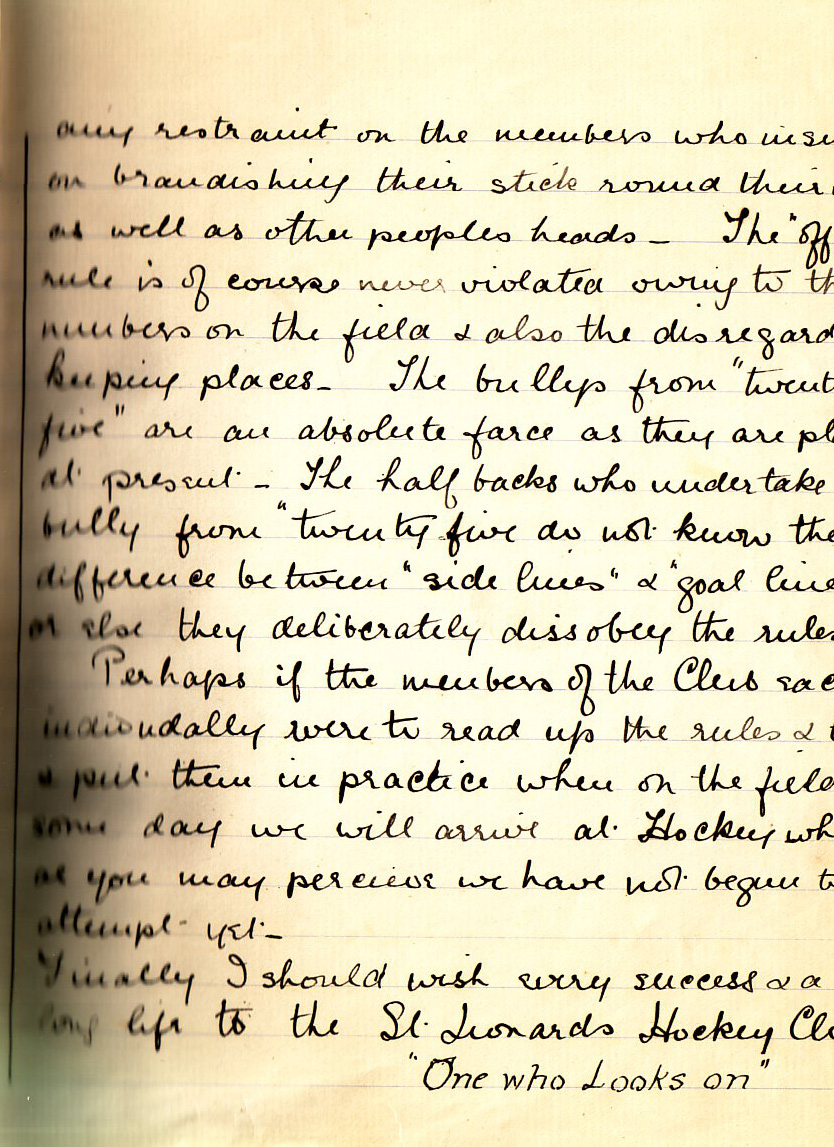 any restraint on the members who insi
on brandishing their stick round their
as well as other peoples heads _ The "off
rule is of course never violated owing to th
numbers on the field & also the disregard
keeping places _ The bullys from "twent
five" are an absolute farce as they are pl
at present _ The half backs who undertake
bully from "twenty five do not know the
difference between "side lines" & "goal line
or else they deliberately dissobey the rules
Perhaps if the members of the Club eac
indivudally were to read up the rules & t
& put them in practice when on the field
some day we will arrive at Hockey wh
as you may percieve we have not begun to
attempt yet _
Finally I should wish every success & a
long life to the St. Leonards Hockey Clu
"One who Looks on"